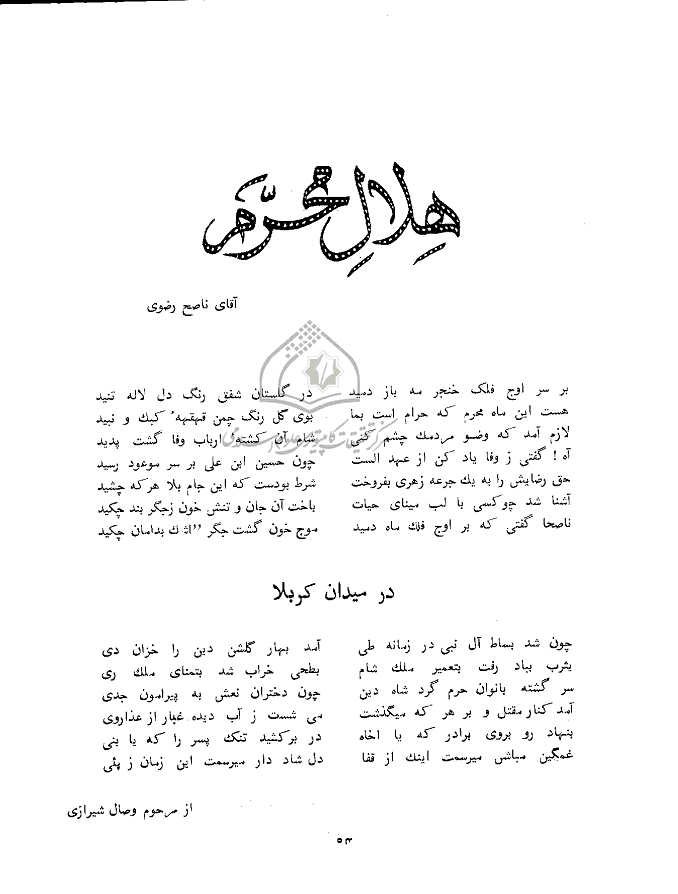 هِلالِ محرّم
آقای ناصح رضوی
بر سر اوج فلک خنجر مه باز دمید در گلستان شفق رنگ دل لاله تنید
هست این ماه محرم که حرام است بما بوی گل رنگ چمن قهقههٔ کبك و نبید
لازم آمد که وضو مردمك چشم کنی شام آن کشتهٔ ارباب وفا گشت پدید
آه ! گفتی ز وفا یاد کن از عهد الست چون حسین ابن علی بر سر موعود رسید
حق رضایش را به یك جرعه زهری بفروخت شرط بودست که این جام بلا هرکه چشید
آشنا شد چوکسی با لب مینای حیات باخت آن جان و تنش خون زجگر بند چکید
ناصحا گفتی که بر اوج فلك ماه دمید موج خون گشت جگر ,,اشك بدامان چکید
در میدان کربلا
چون شد بساط آل نبی در زمانه طی آمد بهار گلشن دین را خزان دی
یثرب بباد رفت بتعمیر ملك شام بطحی خراب شد بتمنای ملك ری
سر گشته بانوان حرم گرد شاه دین چون دختران نعش به پیرامون جدی
آمد کنار مقتل و بر هر که میگذشت می شست ز آب دیده غبار از عذاروی
بنهاد رو بروی برادر که یا اخاه در برکشید تنک پسر را که یا بنی
غمگین مباش میرسمت اینك از قفا دل شاد دار میرسمت این زمان ز پئی
از مرحوم وصال شیرازی
۵۴